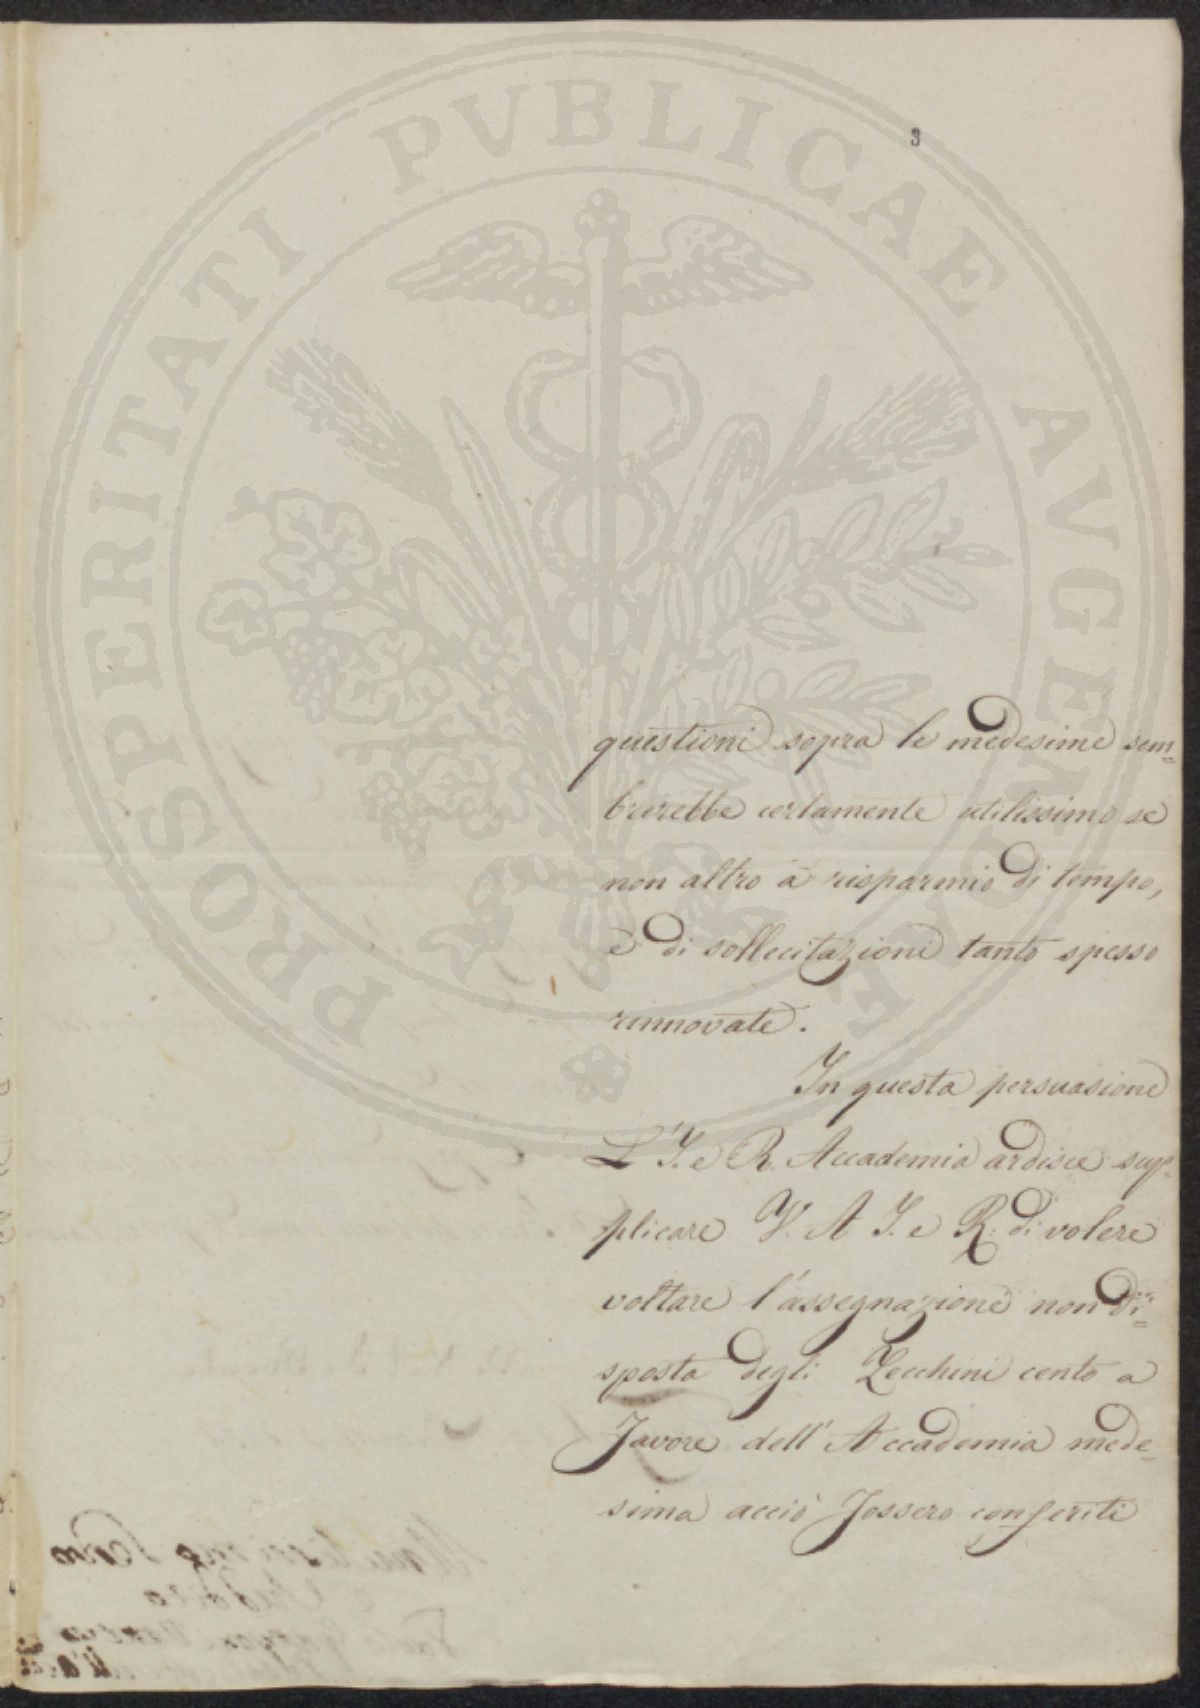 PROSPERITATI PVBLICAE AVGENDAE
3
questioni sopra le medesime sem=
brerebbe certamente utilissimo se
non altro a risparmio di tempo,
e di sollecitazioni tanto spesso
rinnovate.
In questa persuasione
L'I. e R. Accademia ardisce sup=
plicare V. A I. e R. di volere
voltare l'assegnazione non di=
sposta degli Zecchini cento a
favore dell'Accademia mede=
sima acciò fossero conferiti